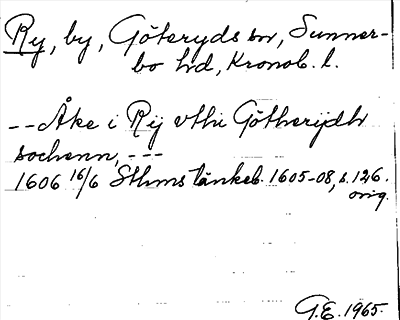 Ry, by, Göteryds sn, Sunner-
bo hd, Kronob. l.
--Åke i Rÿ vthi Götherÿdh
sochenn, ---
1606 16/6 Sthms tänkeb. 1605-08, s. 126.
orig.
G.E. 1965.